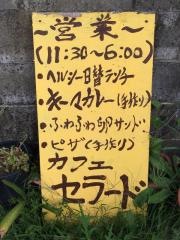 ～営業～
(11:30～6:00)
・ヘルシー日替ランチ
・キーマカレー(手作り)
・ふわふわ卵サンド
・ピザ(手作り)
カフェ
セラード